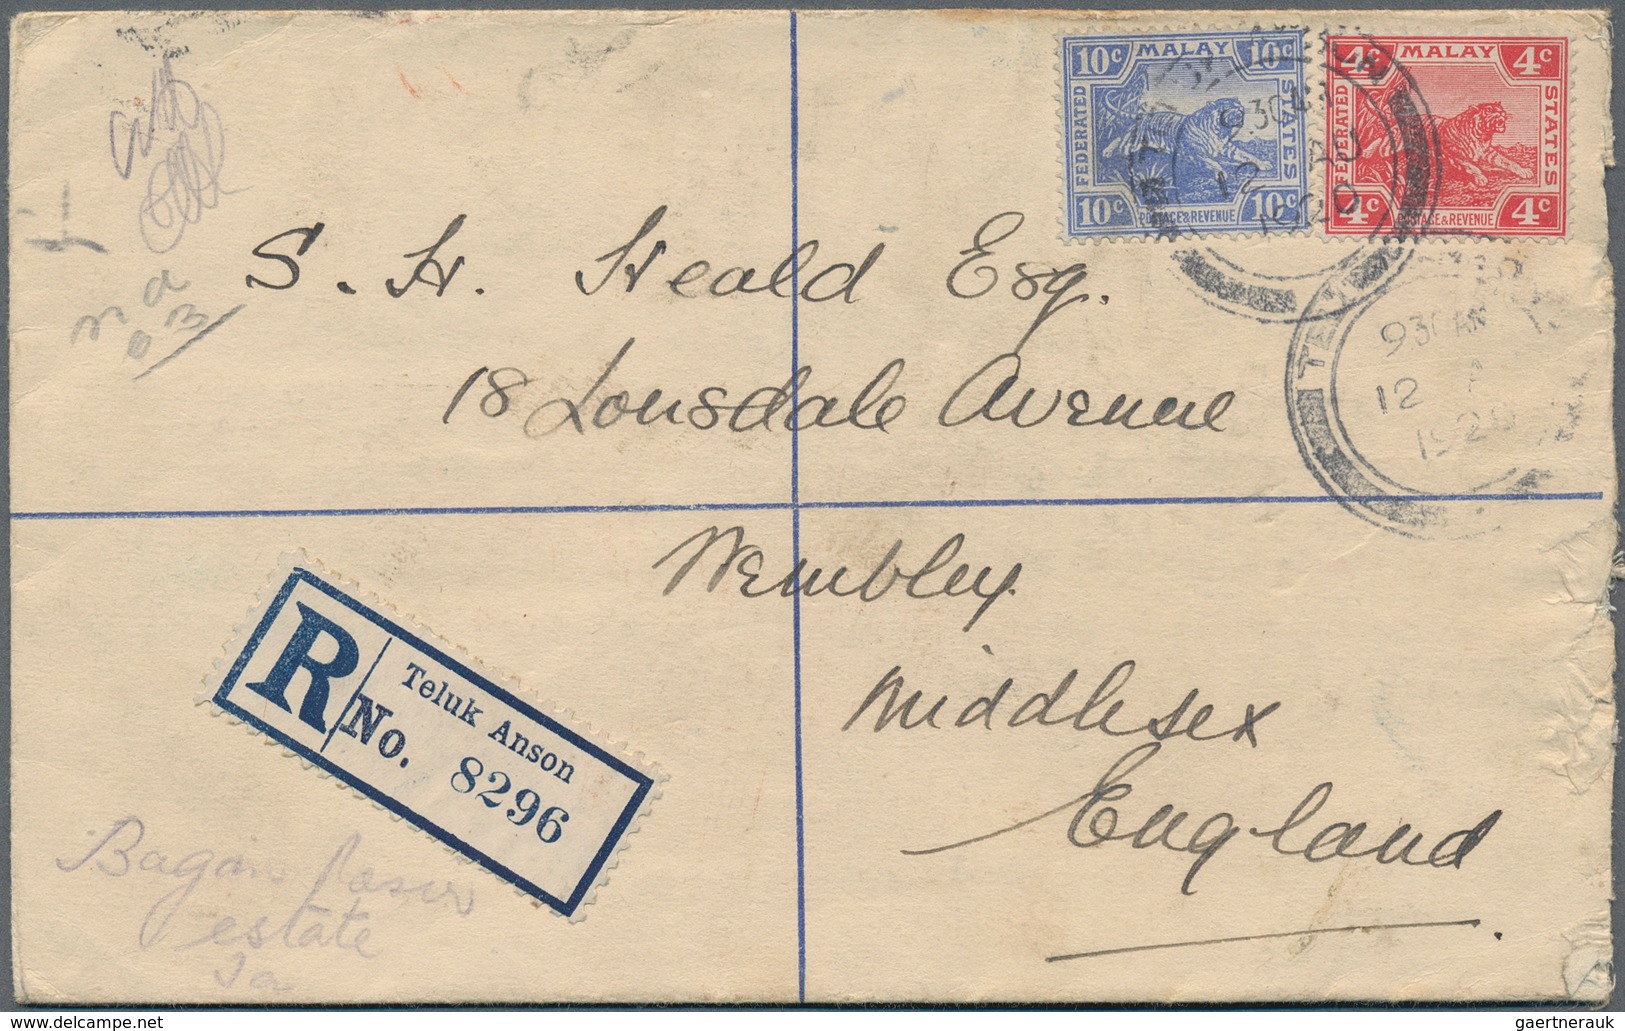 10c MALAY 10c
FEDERATED
STATES
10c POSTAGE & REVENUE 10c
4c MALAY 4c
FEDERATED
STATES
4c POSTAGE & REVENUE 4c
9.30 AM
12 AU
1920
S. H. Heald Esq.
18 Lonsdale Avenue
930 AM
12
1920
Wembley
Middlesex
England
R
Teluk Anson
No. 8296
Bagan
estate
gaertnerauk